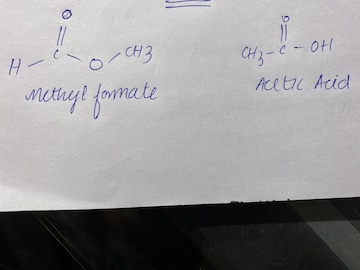 O
||
H - C - O - CH3
Methyl formate
O
||
CH3 - C - OH
Acetic Acid